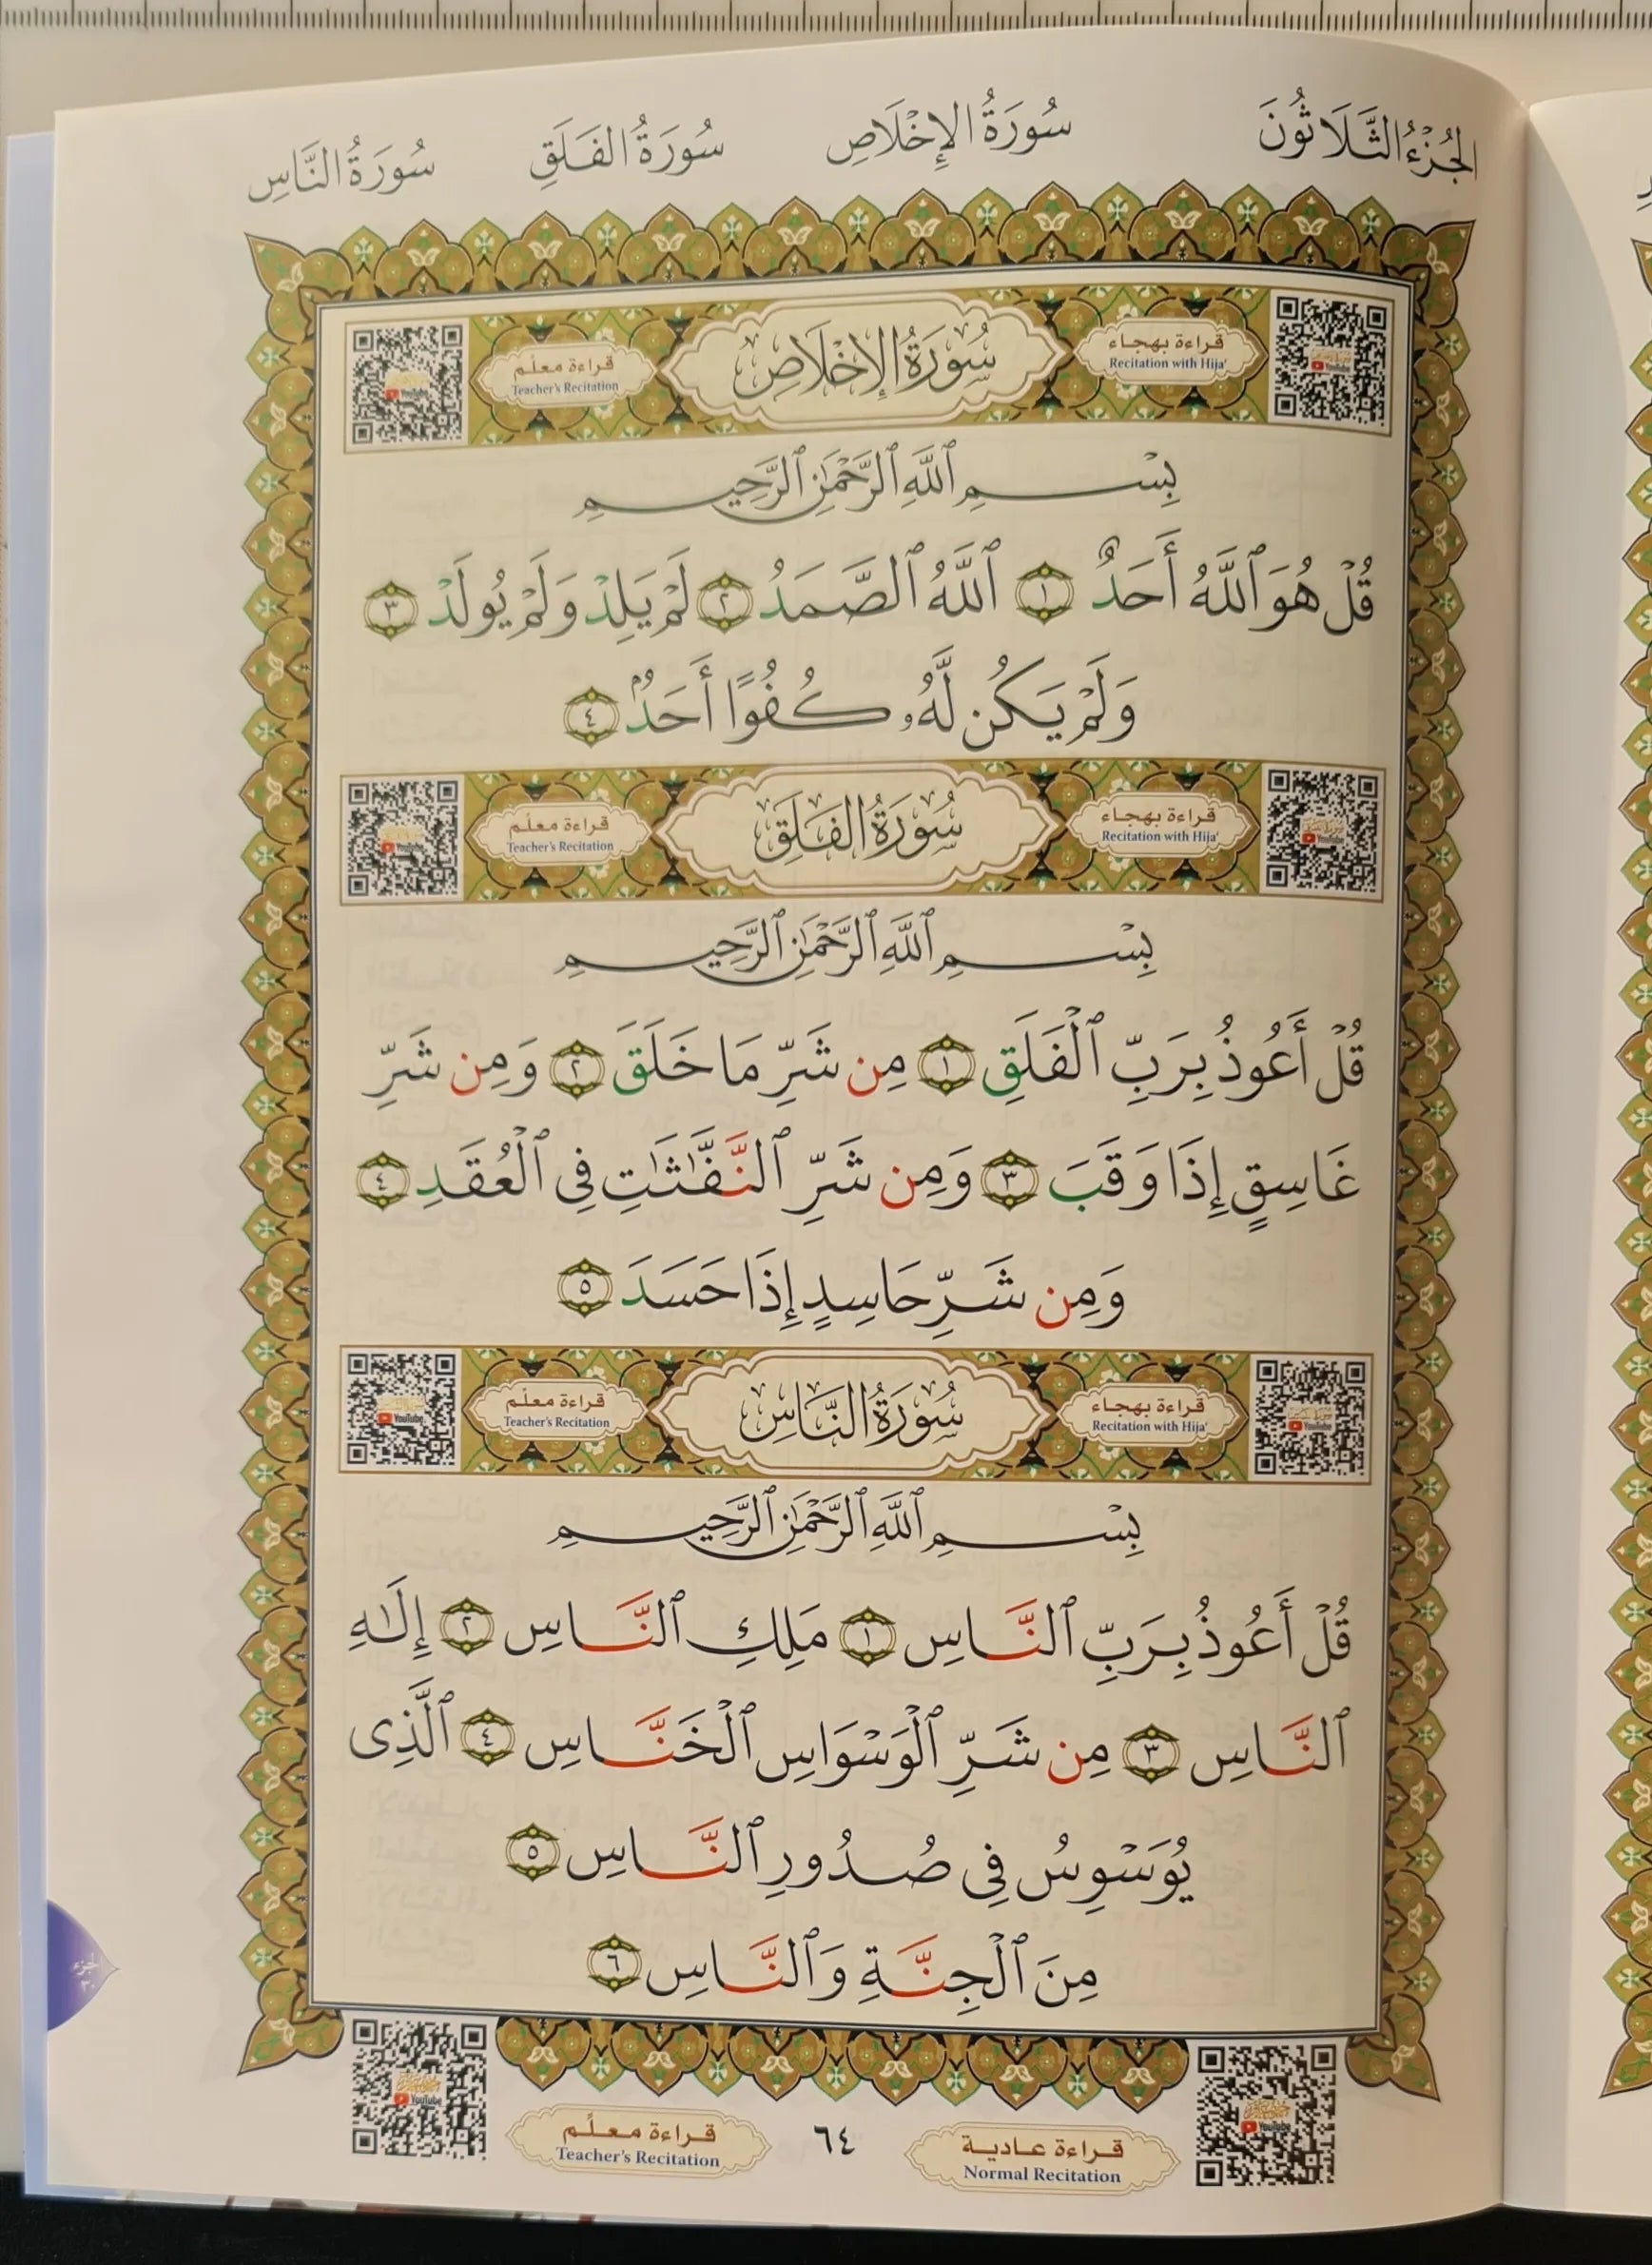 الجُزْءُ الثَّلَاثُونَ سُورَةُ الإِخْلَاصِ سُورَةُ الفَلَقِ سُورَةُ النَّاسِ
قراءة بهجاء
Recitation with Hija'
سُورَةُ الإِخْلَاصِ
قراءة معلّم
Teacher's Recitation
بِسْمِ ٱللَّهِ ٱلرَّحْمَٰنِ ٱلرَّحِيمِ
قُلْ هُوَ ٱللَّهُ أَحَدٌ ١ ٱللَّهُ ٱلصَّمَدُ ٢ لَمْ يَلِدْ وَلَمْ يُولَدْ ٣
وَلَمْ يَكُن لَّهُۥ كُفُوًا أَحَدٌۢ ٤
قراءة بهجاء
Recitation with Hija'
سُورَةُ الفَلَقِ
قراءة معلّم
Teacher's Recitation
بِسْمِ ٱللَّهِ ٱلرَّحْمَٰنِ ٱلرَّحِيمِ
قُلْ أَعُوذُ بِرَبِّ ٱلْفَلَقِ ١ مِن شَرِّ مَا خَلَقَ ٢ وَمِن شَرِّ
غَاسِقٍ إِذَا وَقَبَ ٣ وَمِن شَرِّ ٱلنَّفَّٰثَٰتِ فِى ٱلْعُقَدِ ٤
وَمِن شَرِّ حَاسِدٍ إِذَا حَسَدَ ٥
قراءة بهجاء
Recitation with Hija'
سُورَةُ النَّاسِ
قراءة معلّم
Teacher's Recitation
بِسْمِ ٱللَّهِ ٱلرَّحْمَٰنِ ٱلرَّحِيمِ
قُلْ أَعُوذُ بِرَبِّ ٱلنَّاسِ ١ مَلِكِ ٱلنَّاسِ ٢ إِلَٰهِ
ٱلنَّاسِ ٣ مِن شَرِّ ٱلْوَسْوَاسِ ٱلْخَنَّاسِ ٤ ٱلَّذِى
يُوَسْوِسُ فِى صُدُورِ ٱلنَّاسِ ٥
مِنَ ٱلْجِنَّةِ وَٱلنَّاسِ ٦
قراءة عادية
Normal Recitation
٦٤
قراءة معلّم
Teacher's Recitation
جزء
٣٠
YouTube
YouTube
YouTube
YouTube
YouTube
YouTube
YouTube
YouTube